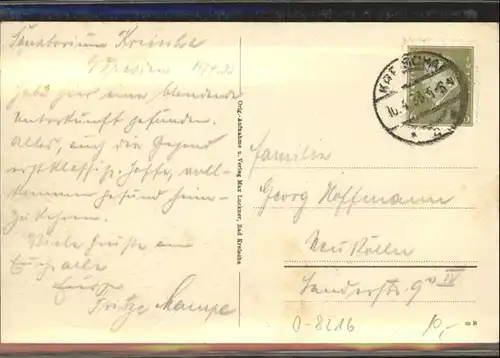 Sanatorium Kreischa
b/Dresden
habe hier eine blendende
Unterkunft gefunden.
Alles, auch die Gegend
erstklassig. Hoffe, voll-
kommen gesund heim-
zukehren.
Viele Grüße an
Euch alle
Euer
Fritze
Orig.-Aufnahme u. Verlag Max Lockner, Bad Kreischa
KREISCHA
Familie
Georg Hoffmann
Neukölln
Sanderstr. 9 IV
0-8216
10,-